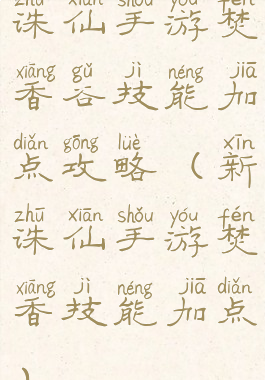 zhū xiān shǒu yóu fén
诛仙手游焚
xiāng gǔ jì néng jiā
香谷技能加
diǎn gōng lüè xīn
点攻略（新
zhū xiān shǒu yóu fén
诛仙手游焚
xiāng jì néng jiā diǎn
香技能加点
）